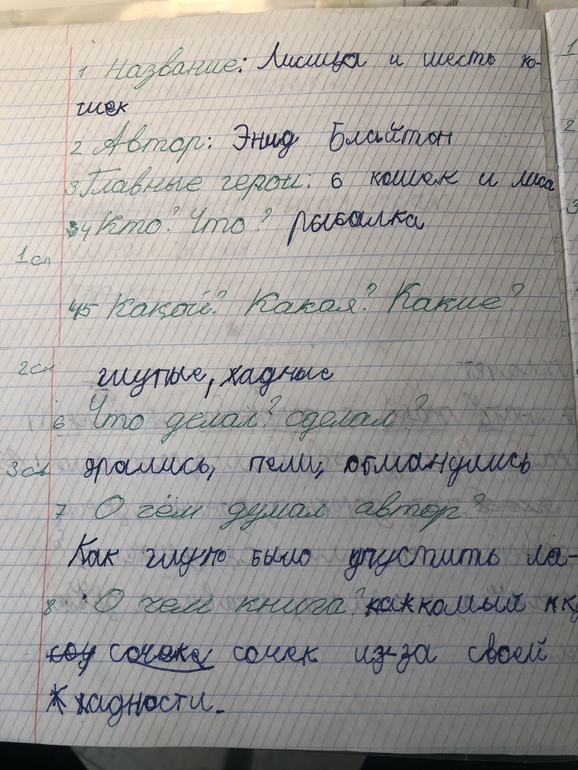 1 Название: Лисица и шесть ко-
шек
2 Автор: Энид Блайтон
3 Главные герои: 6 кошек и лиса
4 Кто? Что? рыбалка
1сл
5 Какой? Какая? Какие?
2сл глупые, жадные
6 Что делал? сделал?
3сл дрались, пели, обманулись
7 О чём думал автор?
Как глупо было упустить ла-
8 О чем книга? комый
сочек из-за своей
жадности.